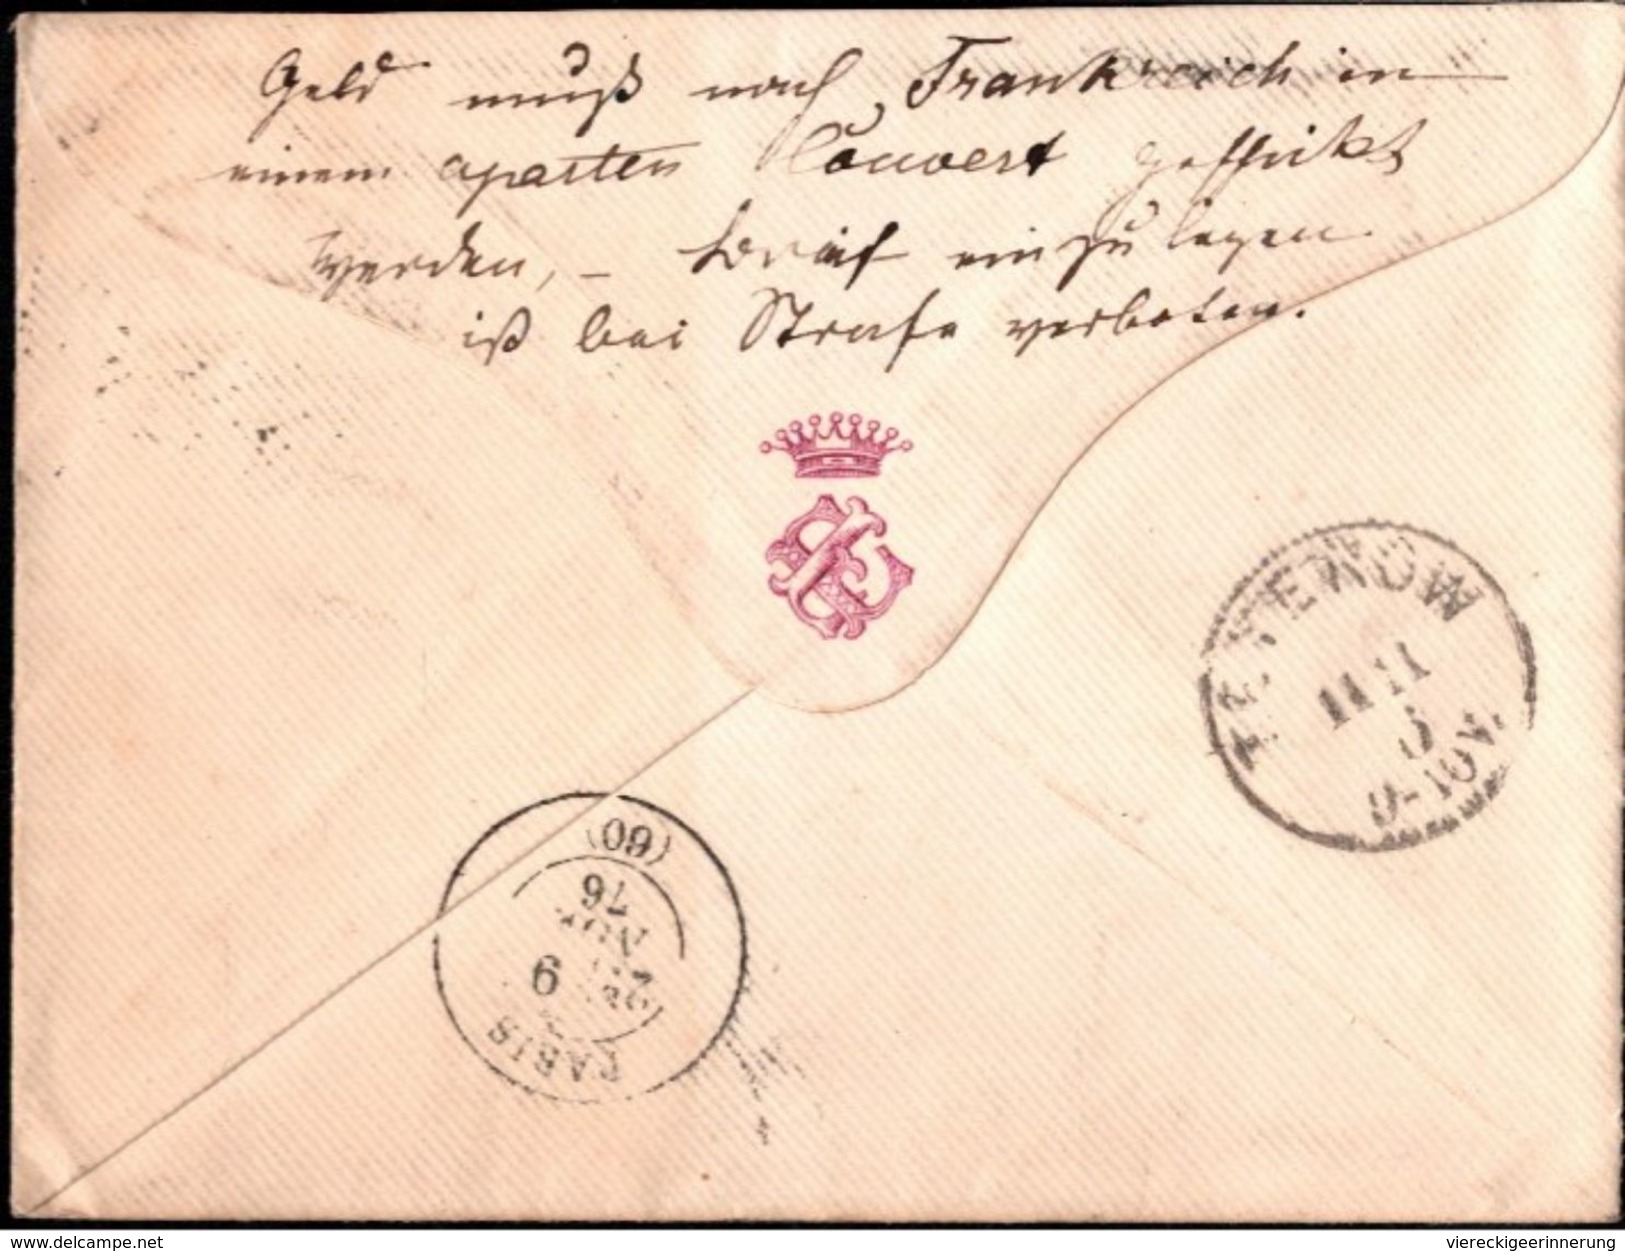 Geld muß nach Frankreich in
einem aparten Couvert geschickt
werden, – darauf einzulegen
ist bei Strafe verboten.
TERE MOW
11 11
9-10 V.
(60)
76
NOV.
9
PARIS
delcampe.net
viereckigeerinnerung